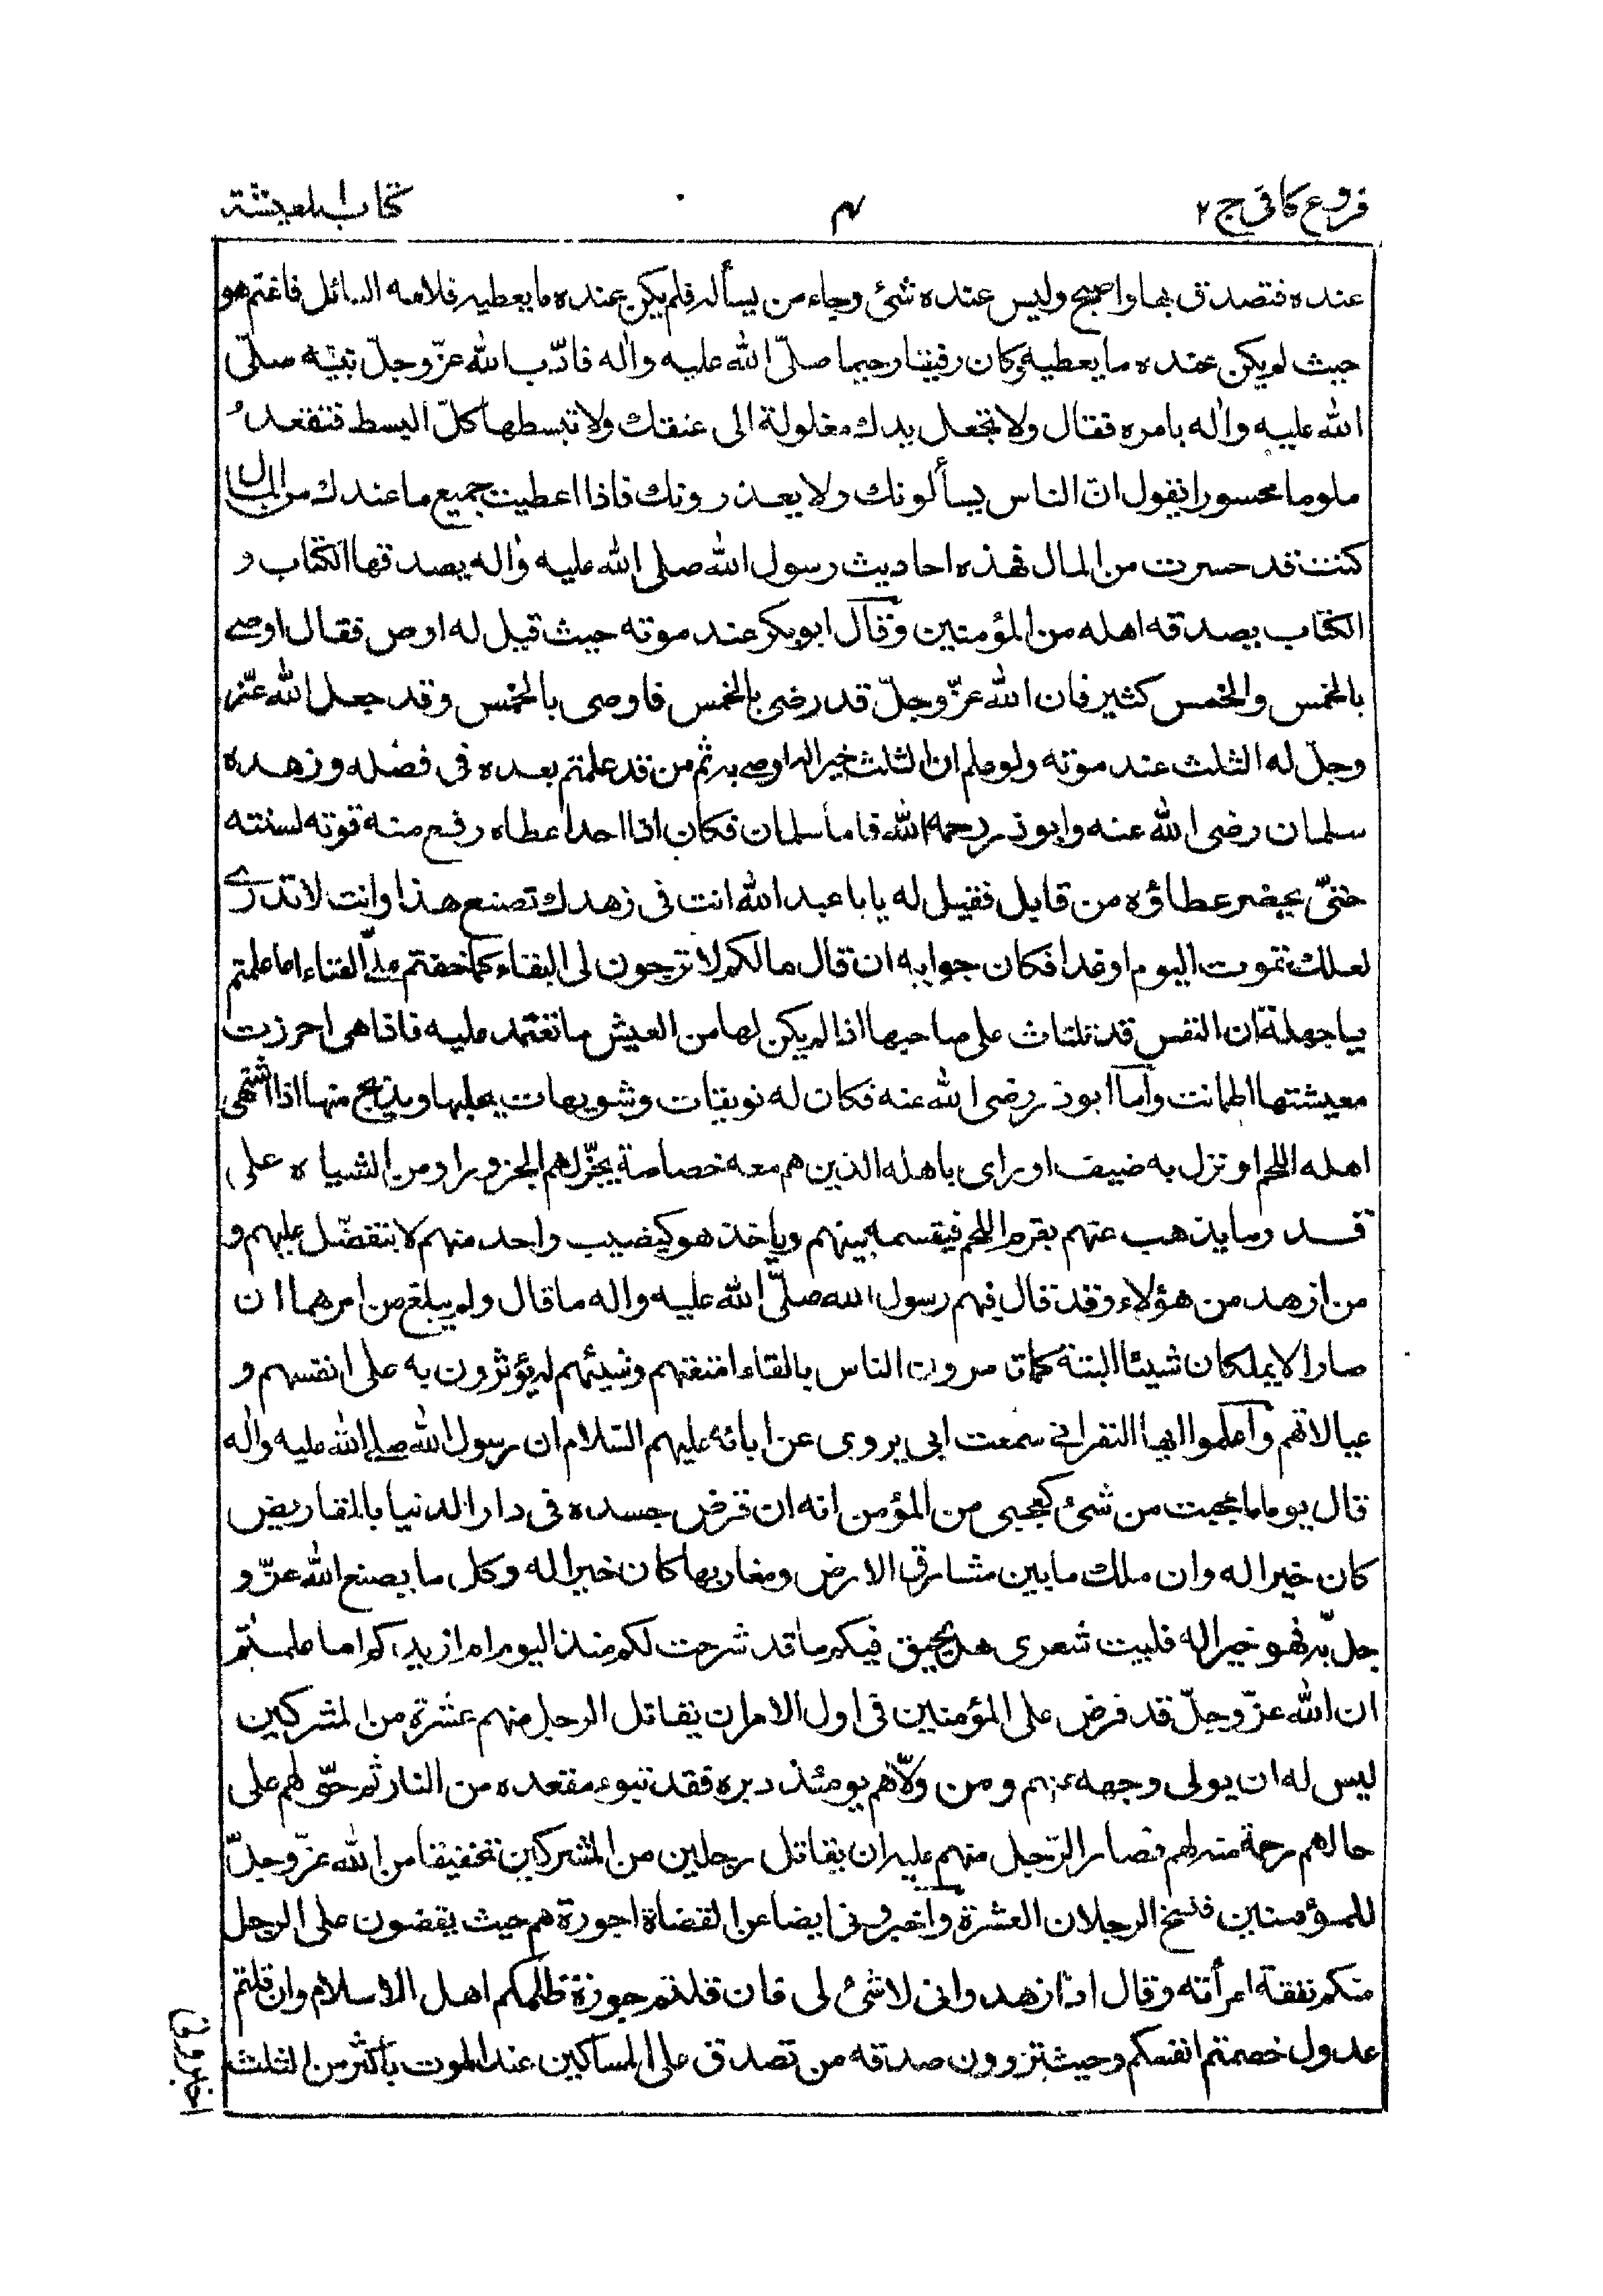 فروع كافى ج ٢
٤
كتاب المعيشة
عنده فتصدق بها واصبح وليس عنده شئ وجاءه من يسأله فلم يكن عنده ما يعطيه فلامه السائل فاغتم هو
حيث لم يكن عنده ما يعطيه وكان رفيقا رحيما صلّى الله عليه واٰله فادّب الله عزّ وجلّ نبيّه صلّى
الله عليه واٰله بامره فقال ولا تجعل يدك مغلولة الى عنقك ولا تبسطها كلّ البسط فتقعد
ملوما محسورا يقول انّ الناس يسألونك ولا يعذرونك فاذا اعطيت جميع ما عندك من المال
كنت قد حسرت من المال فهذه احاديث رسول الله صلى الله عليه واٰله يصدقها الكتاب و
الكتاب يصدقه اهله من المؤمنين وقال ابو بكر عند موته حيث قيل له اوص فقال اوصى
بالخمس والخمس كثير فان الله عزّ وجلّ قد رضى بالخمس فاوصى بالخمس وقد جعل الله عزّ
وجلّ له الثلث عند موته ولو علم ان الثلث خير له اوصى به ثم من قد علمتم بعده فى فضله وزهده
سلمان رضى الله عنه وابوذر رحمه الله فاما سلمان فكان اذا اخذ اعطاه رفع منه قوته لسنته
حتىّ يحضر عطاؤه من قابل فقيل له يا با عبد الله انت فى زهدك تصنع هذا وانت لا تدرى
لعلك تموت اليوم او غدا فكان جوابه ان قال ما لكم لا ترجون لى البقاء كما خفتم علىّ الفناء اما علمتم
يا جهلة ان النفس قد تلتاث على صاحبها اذا لم يكن لها من العيش ما تعتمد عليه فاذا هى احرزت
معيشتها اطمانت وامّا ابوذر رضى الله عنه فكان له نويقات وشويهات يحلبها ويذبح منها اذا اشتهى
اهله اللحم او نزل به ضيف او راى باهله الذين هم معه خصاصة نحر لهم الجزور او من الشياه على
قدر ما يذهب عنهم بقرم اللحم فيقسمه بينهم وياخذ هو كنصيب واحد منهم لا يتفضّل عليهم و
من ازهد من هؤلاء وقد قال فيهم رسول الله صلّى الله عليه واله ما قال ولم يبلغ من امرهما ان
صارا لا يملكان شيئا البتة كما تامرون الناس بالقاء امتعتهم وشيئهم ليؤثرون به على انفسهم و
عيالاتهم واعلموا ايها النفر انى سمعت ابى يروى عن ابائه عليهم السّلام ان رسول الله صلى الله عليه واٰله
قال يوما ما عجبت من شئ كعجبى من المؤمن انه ان قرض جسده فى دار الدنيا بالمقاريض
كان خيرا له وان ملك ما بين مشارق الارض ومغاربها كان خيرا له وكل ما يصنع الله عزّ و
جلّ به فهو خير له فليت شعرى هل يحيق فيكم ما قد شرحت لكم منذ اليوم ام ازيدكم اما علمتم
ان الله عزّ وجلّ قد فرض على المؤمنين فى اول الامر ان يقاتل الرجل منهم عشرة من المشركين
ليس له ان يولى وجهه عنهم و من ولّاهم يومئذ دبره فقد تبوء مقعده من النار ثم حتى لهم على
حالهم رحمة منه لهم فصار الرّجل منهم عليه ان يقاتل رجلين من المشركين تخفيفا من الله عزّ وجلّ
للمؤمنين فنسخ الرجلان العشرة واخبرونى ايضا عن القضاة اجورة هم حيث يقضون على الرجل
منكم نفقة امرأته وقال اذا زهد وانى لا شئ لى فان قلتم جورة ظلمكم اهل الاسلام وان قلتم
عدول خصمتم انفسكم وحيث تردون صدقه من تصدق على المساكين عند الموت باكثر من الثلث
اخبرونى